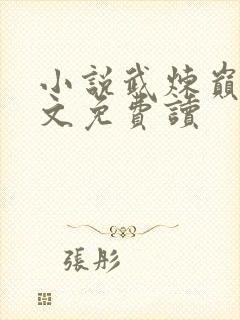 小說武煉巔
文免費讀
張彤